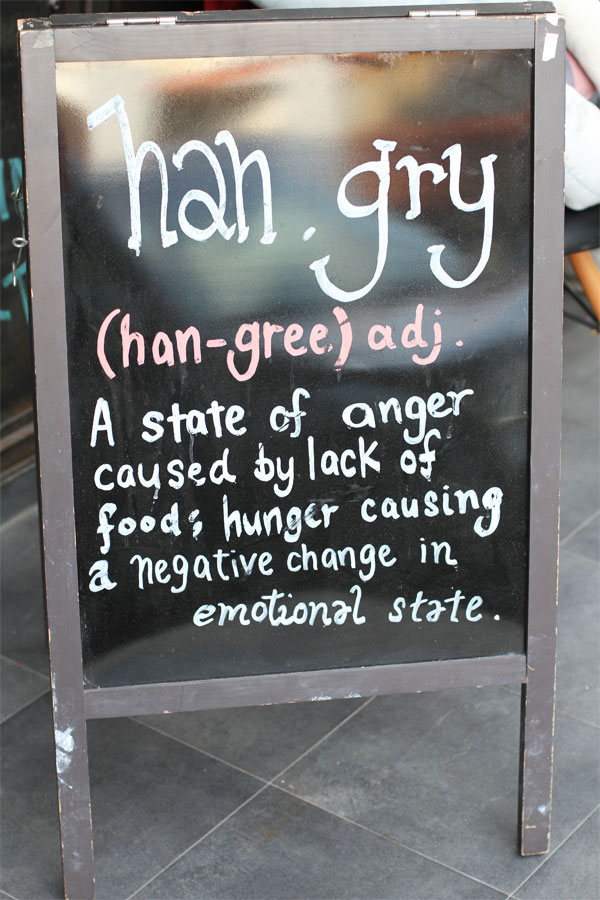 han.gry
(han-gree) adj.
A state of anger
caused by lack of
food; hunger causing
a negative change in
emotional state.